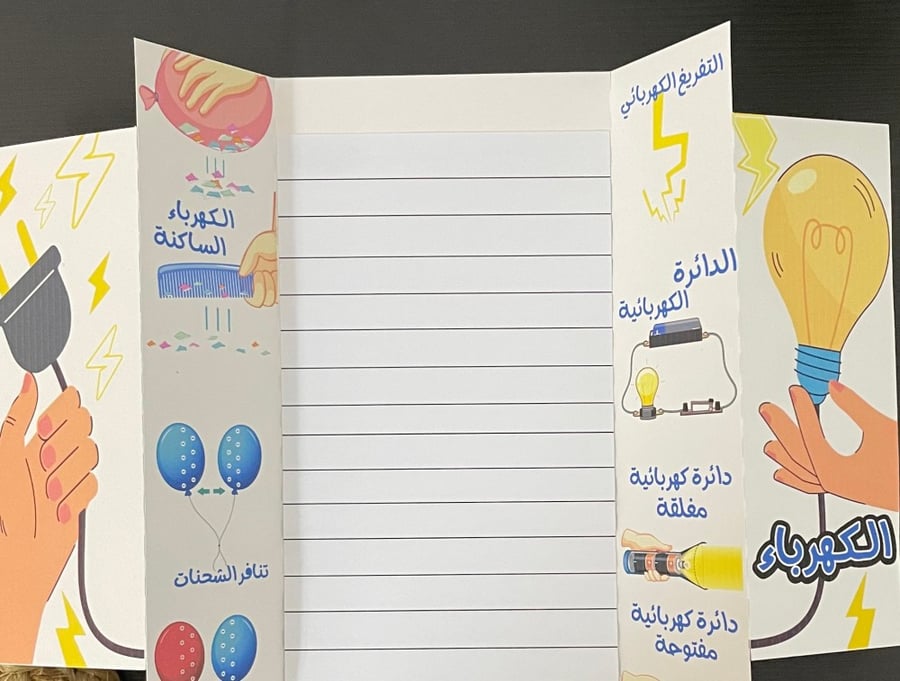 التفريغ الكهربائي
الدائرة
الكهربائية
دائرة كهربائية
مغلقة
دائرة كهربائية
مفتوحة
الكهرباء
الكهرباء
الساكنة
تنافر الشحنات